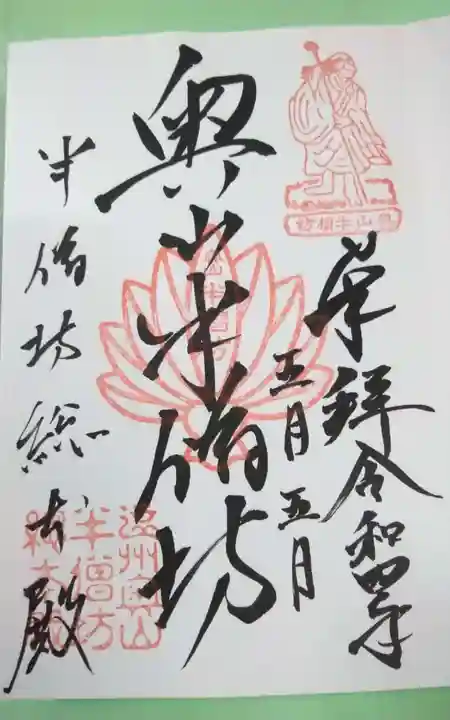 奉拝 令和四年
五月五日
奥山半僧坊
半僧坊総本殿
奥山半僧坊
遠州奥山
半僧坊
総本殿